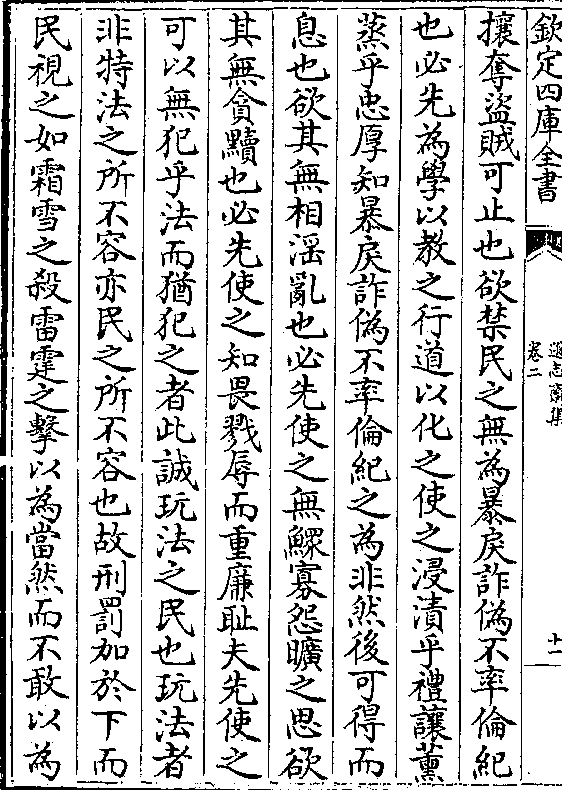 欽定四庫全書
遜志齋集
卷二
十一
攘奪盜賊可止也欲禁民之無為暴戾詐偽不率倫紀
也必先為學以教之行道以化之使之浸漬乎禮讓薰
蒸乎忠厚知暴戾詐偽不率倫紀之為非然後可得而
息也欲其無相淫亂也必先使之無鰥寡怨曠之思欲
其無貪黷也必先使之知畏戮辱而重廉耻夫先使之
可以無犯乎法而猶犯之者此誠玩法之民也玩法者
非特法之所不容亦民之所不容也故刑罰加於下而
民視之如霜雪之殺雷霆之擊以為當然而不敢以為